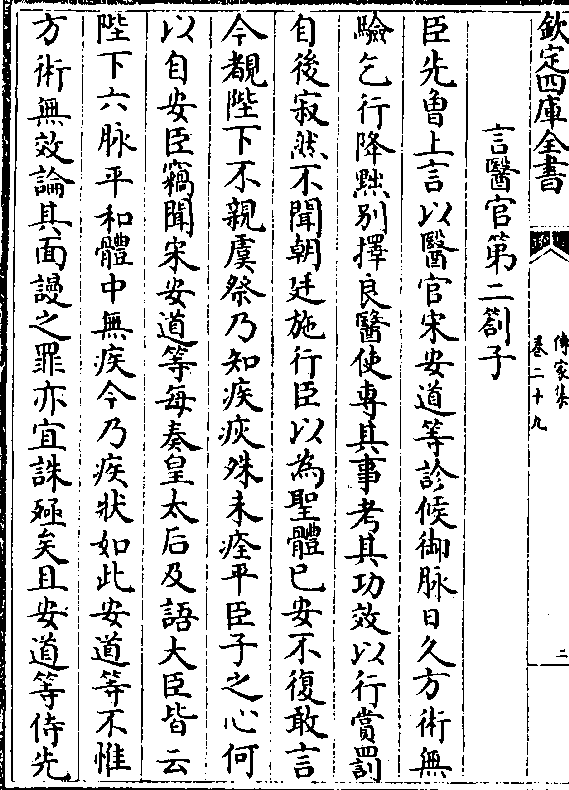 欽定四庫全書
傳家集
卷二十九
二
言醫官第二劄子
臣先曾上言以醫官宋安道等診候御脉日久方術無
驗乞行降黜別擇良醫使專其事考其功效以行賞罰
自後寂然不聞朝廷施行臣以為聖體已安不復敢言
今覩陛下不親虞祭乃知疾疢殊未痊平臣子之心何
以自安臣竊聞宋安道等每奏皇太后及語大臣皆云
陛下六脉平和體中無疾今乃疾狀如此安道等不惟
方術無效論其面謾之罪亦宜誅殛矣且安道等侍先